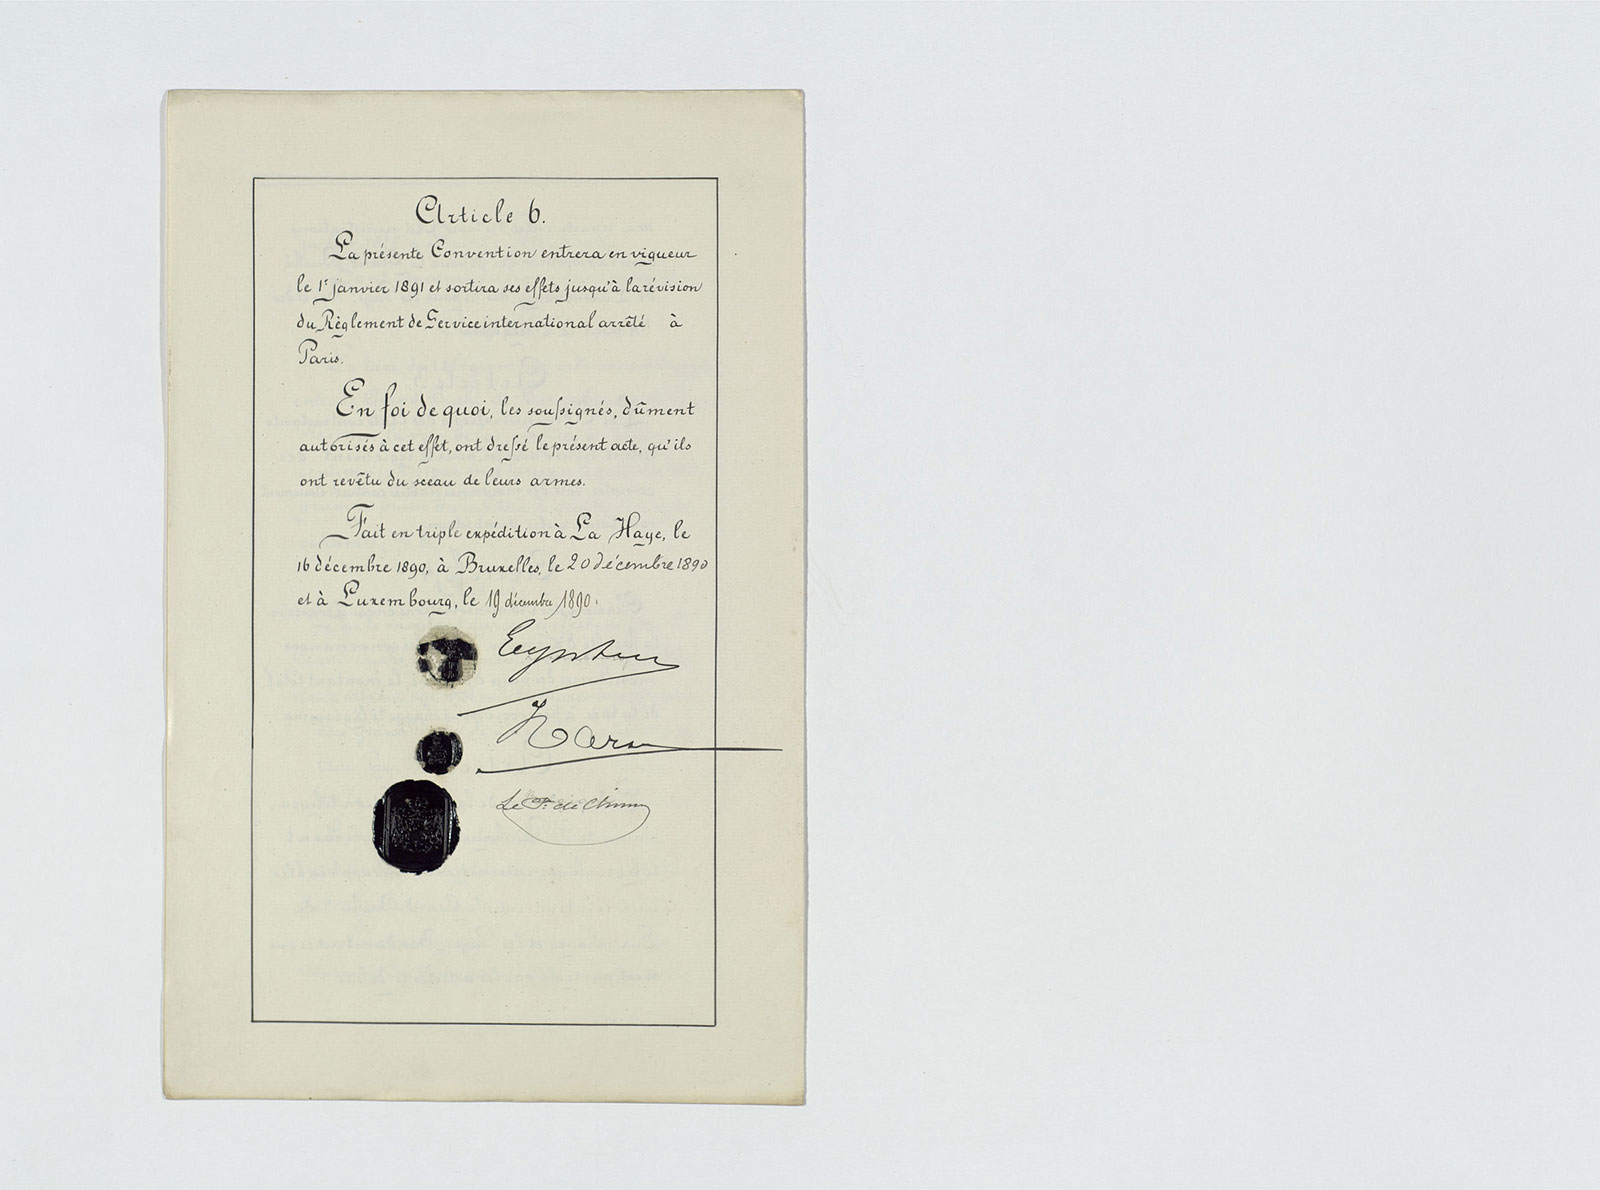 Article 6.
La présente Convention entrera en vigueur
le 1r janvier 1891 et sortira ses effets jusqu'à la révision
du Règlement de Service international arrêté à
Paris.
En foi de quoi, les soussignés, dûment
autorisés à cet effet, ont dressé le présent acte, qu'ils
ont revêtu du sceau de leurs armes.
Fait en triple expédition à La Haye, le
16 décembre 1890, à Bruxelles, le 20 décembre 1890
et à Luxembourg, le 19 décembre 1890.
Le Pce de Chimay